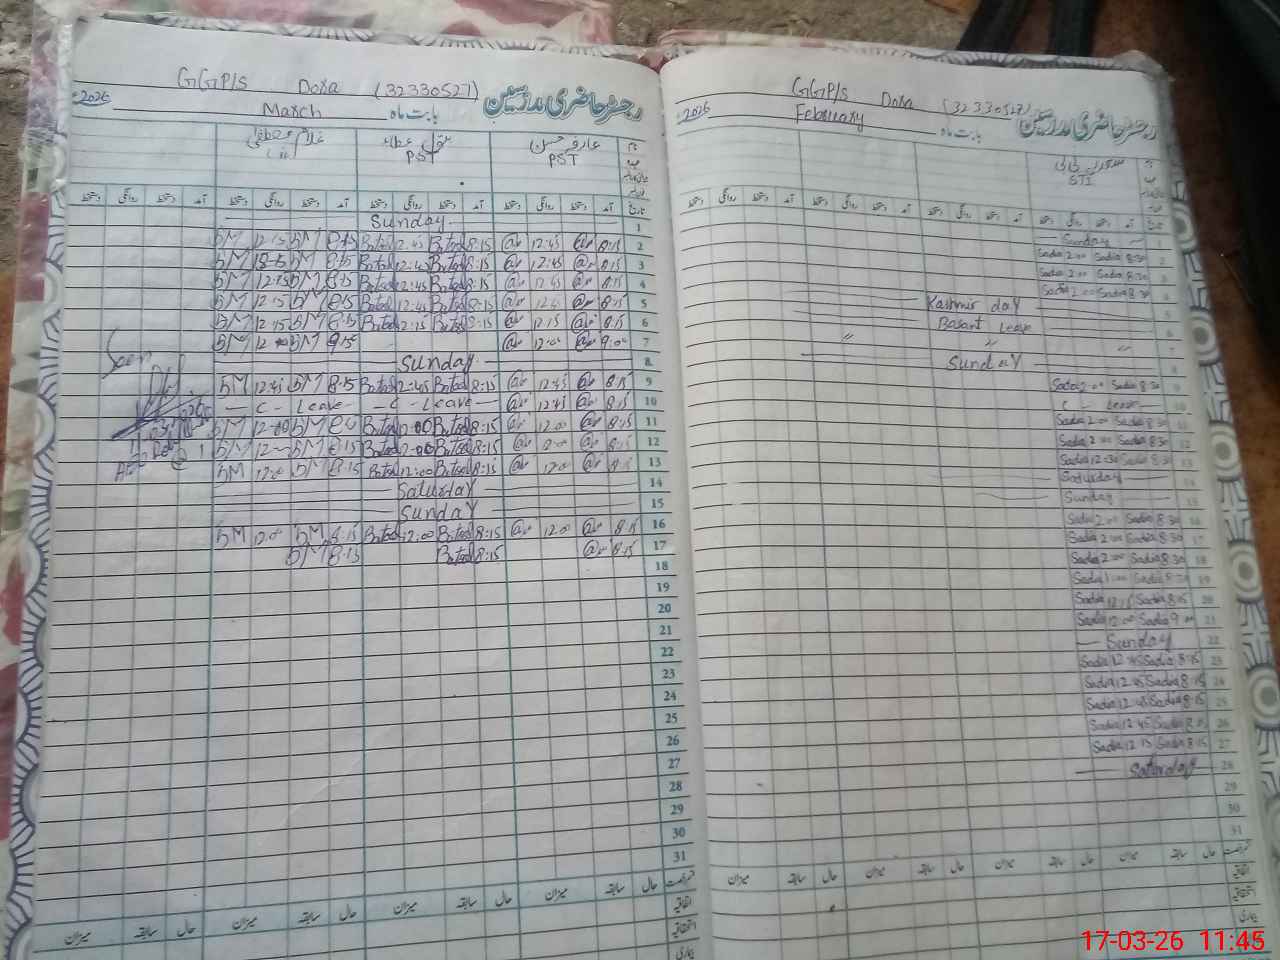 GGP/S Doxa (32330527)
رجسٹر حاضری مدرسین
2026 March بابت ماہ
عارفہ حسن
PST PST
آمد دستخط روانگی دستخط آمد دستخط روانگی دستخط آمد دستخط روانگی دستخط آمد دستخط روانگی دستخط
تاریخ
1 Sunday
2 8:15 12:45 8:15 Batool 2:45 Batool 8:15 BM 12:15 BM
3 8:15 12:45 8:15 Batool 2:45 Batool 8:15 BM BM
4 8:15 12:45 8:15 Batool 12:45 Batool 8:15 BM 12:15 BM
5 8:15 12:45 8:15 Batool 12:45 Batool 8:15 BM 12:15 BM
6 8:15 12:15 8:15 Batool 2:15 Batool 8:15 BM 12:15 BM
7 9:00 12:00 9:15 BM 12:00 BM
8 Sunday
9 8:15 12:45 8:15 Batool 2:45 Batool 8:15 BM 12:45 BM
10 8:15 12:45 C - Leave C - Leave
11 8:15 12:00 8:15 Batool 2:00 Batool BM 12:00 BM
12 8:15 12:00 8:15 Batool 2:00 Batool 8:15 BM BM
13 8:15 12:00 8:15 Batool 12:00 Batool 8:15 BM 12:00 BM
14 Saturday
15 Sunday
16 8:15 12:00 8:15 Batool 12:00 Batool 8:15 BM 12:00 BM
17 8:15 8:15 Batool 8:15 BM
18
19
20
21
22
23
24
25
26
27
28
29
30
31
Seen
حال سابقہ میزان حال سابقہ میزان حال سابقہ میزان حال سابقہ میزان
اتفاقیہ
استحقاقیہ
بیماری
GGP/S Doxa (32330527)
رجسٹر حاضری مدرسین
2026 February بابت ماہ
STI
آمد دستخط روانگی دستخط آمد دستخط روانگی دستخط آمد دستخط روانگی دستخط آمد دستخط روانگی دستخط
تاریخ
1 Sunday
2 Sadia 2:00 Sadia 8:30
3 Sadia 2:00 Sadia 8:30
4 Sadia 2:00 Sadia 8:30
5 Kashmir day
6 Basant Leave
7 " " "
8 Sunday
9 Sadia 2:00 Sadia 8:30
10 C - Leave
11 Sadia 2:00 Sadia 8:30
12 Sadia 2:00 Sadia 8:30
13 Sadia 12:30 Sadia 8:30
14 Saturday
15 Sunday
16 Sadia 2:00 Sadia 8:30
17 Sadia 2:00 Sadia 8:30
18 Sadia 2:00 Sadia 8:30
19 Sadia 1:00 Sadia 8:30
20 Sadia 12:15 Sadia 8:15
21 Sadia 12:00 Sadia 9:00
22 Sunday
23 Sadia 12:45 Sadia 8:15
24 Sadia 12:45 Sadia 8:15
25 Sadia 12:45 Sadia 8:15
26 Sadia 12:45 Sadia 8:15
27 Sadia 12:15 Sadia 8:15
28 Saturday
29
30
31
حال سابقہ میزان حال سابقہ میزان حال سابقہ میزان حال سابقہ میزان
اتفاقیہ
استحقاقیہ
بیماری
17-03-26 11:45